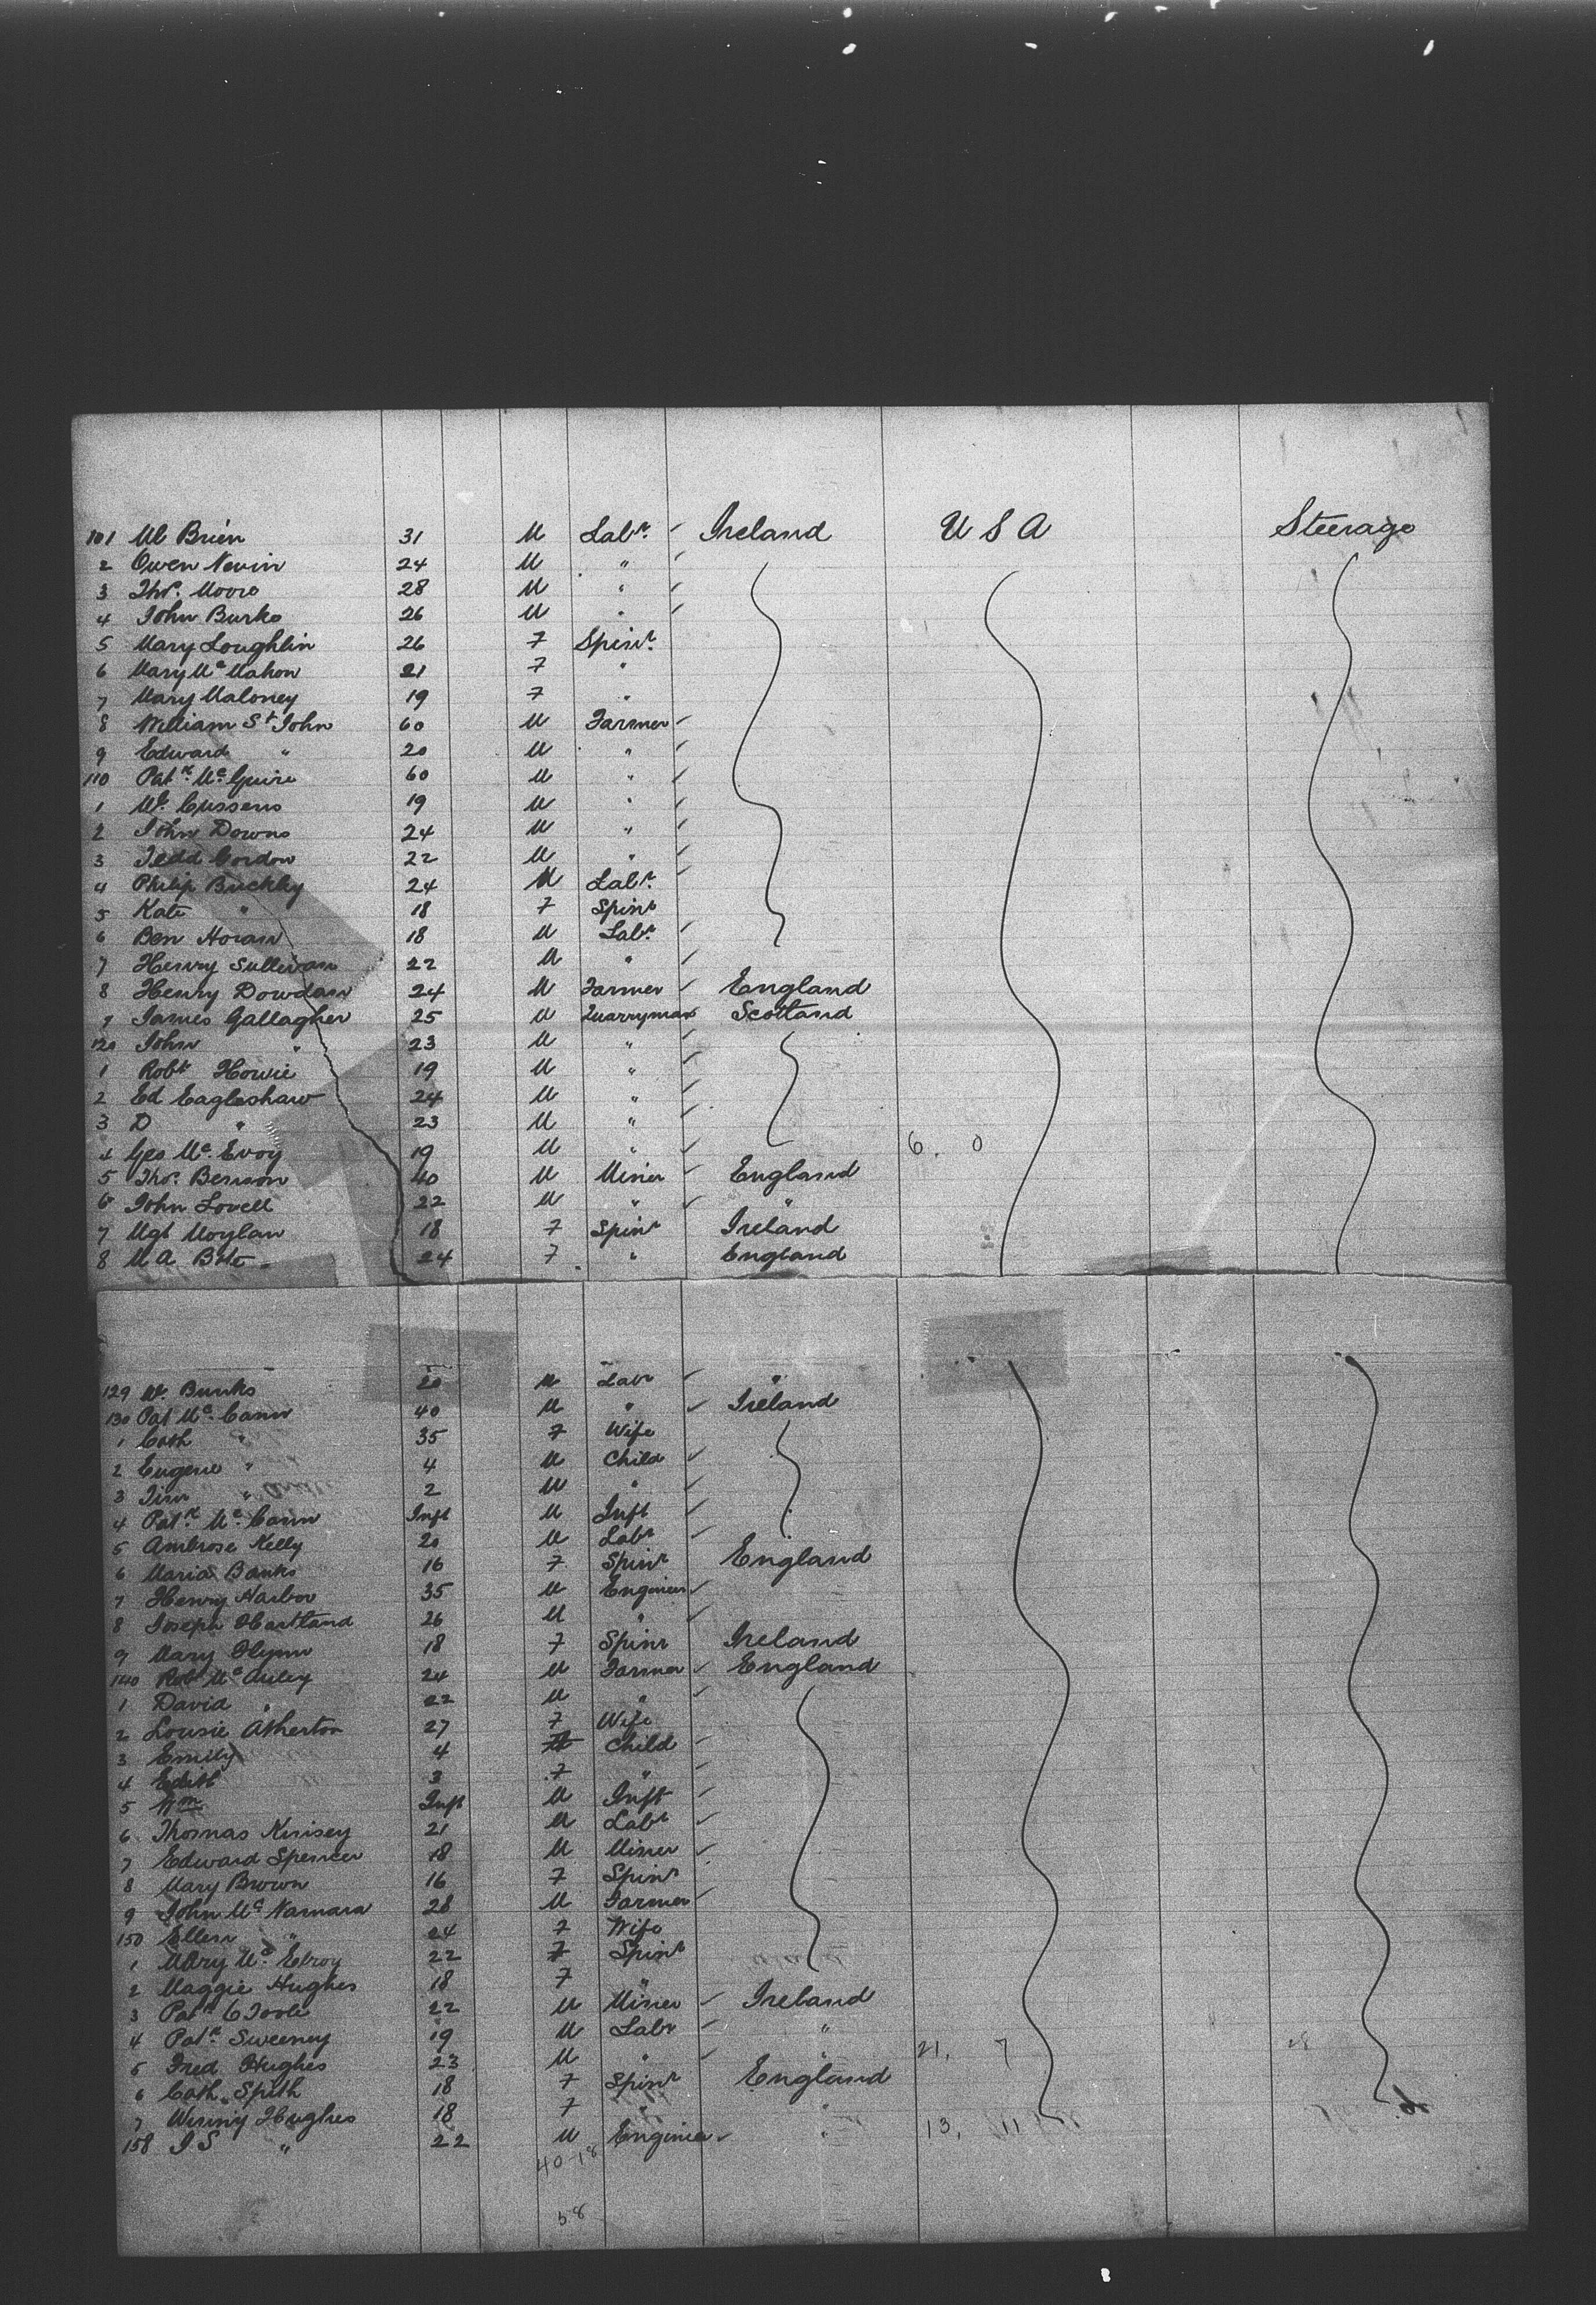 101 Ml Brien 31 M Labr. Ireland U S A Steerage
2 Owen Nevin 24 M "
3 Thos. Moore 28 M "
4 John Burke 26 M "
5 Mary Loughlin 26 F Spinr.
6 Mary Mc Mahon 21 F "
7 Mary Maloney 19 F "
8 William St John 60 M Farmer
9 Edward " 20 M "
110 Patk. Mc. Guire 60 M "
1 Wm. Cussens 19 M "
2 John Downs 24 M "
3 Tedd Cordon 22 M "
4 Philip Buckley 24 M Labr.
5 Kate " 18 F Spinr
6 Ben Horan 18 M Labr.
7 Henry Sullivan 22 M "
8 Henry Dowdan 24 M Farmer England
9 James Gallagher 25 M Quarryman Scotland
120 John " 23 M "
1 Robt Howie 19 M "
2 Ed Eagleshaw 24 M "
3 D " 23 M "
4 Geo Mc. Evoy 19 M " 6. 0
5 Thos. Benson 40 M Miner England
6 John Lovell 22 M " "
7 Mgt Moylan 18 F Spinr Ireland
8 M A 24 F " England
129 W. Bunks 20 M Labr "
130 Pat Mc. Cann 40 M " Ireland
1 Cath " 35 F Wife
2 Eugene " 4 M Child
3 Tim " 2 M "
4 Patk. Mc. Cann Inft M Inft
5 Ambrose Kelly 20 M Labr
6 Maria Banks 16 F Spinr England
7 Henry Harbor 35 M Engineer
8 Joseph Hartland 26 M "
9 Mary Flynn 18 F Spinr Ireland
140 Robt Mc Auley 24 M Farmer England
1 David " 22 M "
2 Lousie Atherton 27 F Wife
3 Emily 4 F Child
4 Edith 3 F "
5 Wm Inft M Inft
6 Thomas Kinsey 21 M Labr
7 Edward Spencer 18 M Miner
8 Mary Brown 16 F Spinr
9 John Mc Namara 28 M Farmer
150 Ellen " 24 F Wife
1 Mary Mc. Elroy 22 F Spinr
2 Maggie Hughes 18 F "
3 Patk O Toole 22 M Miner Ireland
4 Patk. Sweeney 19 M Labr "
5 Fred Hughes 23 M " " 21. 7
6 Cath. Spith 18 F Spinr England
7 Winny Hughes 18 F " "
158 J S " 22 M Engineer " 13. 11
40-18
58